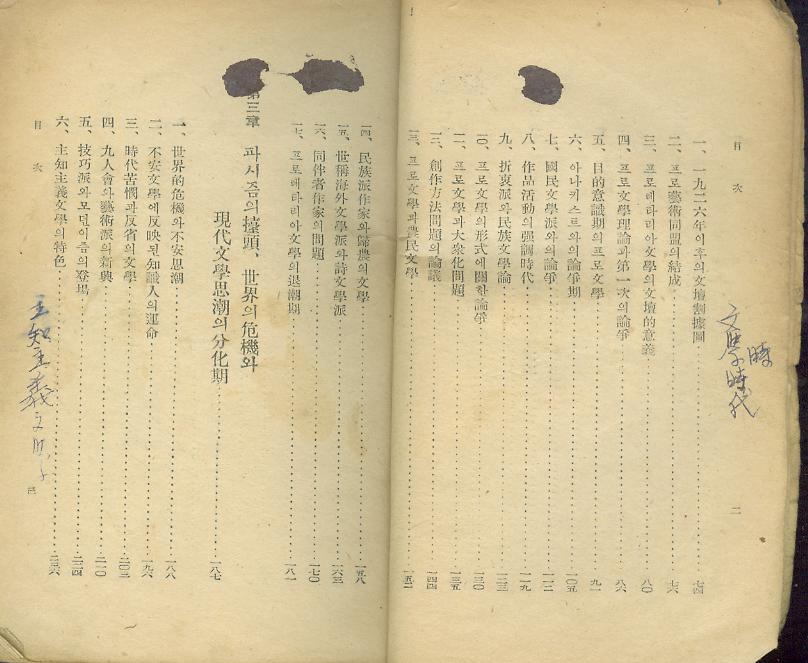 目次
一、一九二六年이후의文壇割據圖……七四
二、프로藝術同盟의結成……七六
三、프로레타리아文學의文壇的意義……八〇
四、프로文學理論과第一次의論爭……八六
五、目的意識期의프로文學……九一
六、아나키스트와의論爭期……一〇五
七、國民文學派와의論爭……一一二
八、作品活動의强調時代……一一九
九、折衷派와民族文學論……一二三
一〇、프로文學의形式에關한論爭……一三〇
一一、프로文學과大衆化問題……一三五
一二、創作方法問題의論議……一四四
一三、프로文學과農民文學……一五二
時
文學時代
二
一四、民族派作家와歸農의文學……一五八
一五、世稱海外文學派와詩文學派……一六三
一六、同伴者作家의問題……一七〇
一七、프로레타리아文學의退潮期……一八一
第三章 파시즘의擡頭、世界의危機와
現代文學思潮의分化期……一八七
一、世界的危機와不安思潮……一八八
二、不安文學에反映된知識人의運命……一九六
三、時代苦悶과反省의文學……二〇三
四、九人會와藝術派의新興……二一〇
五、技巧派와모던이즘의登場……二二四
六、主知主義文學의特色……二三六
目次
主知主義文學
三